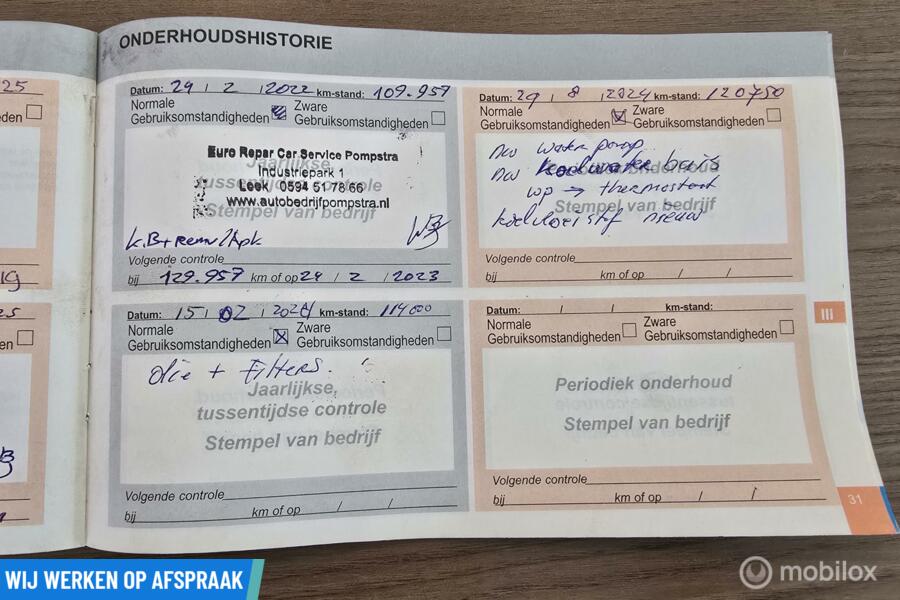 ONDERHOUDSHISTORIE
25
Datum: 24 / 2 / 2022 km-stand: 109.957
Normale Gebruiksomstandigheden
Zware Gebruiksomstandigheden
Euro Repar Car Service Pompstra
Industriepark 1
Leek 0594 51 78 66
www.autobedrijfpompstra.nl
Jaarlijkse,
tussentijdse controle
Stempel van bedrijf
Volgende controle
bij 129.957 km of op 24 / 2 / 2023
Datum: 29 / 8 / 2024 km-stand: 120750
Normale Gebruiksomstandigheden
Zware Gebruiksomstandigheden
waterpomp
thermostaat
koelvloeistof nieuw
Stempel van bedrijf
Volgende controle
bij km of op / /
Datum: 15 / 02 / 2024 km-stand: 114000
Normale Gebruiksomstandigheden
Zware Gebruiksomstandigheden
olie + Filters.
Jaarlijkse,
tussentijdse controle
Stempel van bedrijf
Volgende controle
bij km of op / /
Datum: / / km-stand:
Normale Gebruiksomstandigheden
Zware Gebruiksomstandigheden
Periodiek onderhoud
Stempel van bedrijf
Volgende controle
bij km of op / /
III
31
WIJ WERKEN OP AFSPRAAK
mobilox